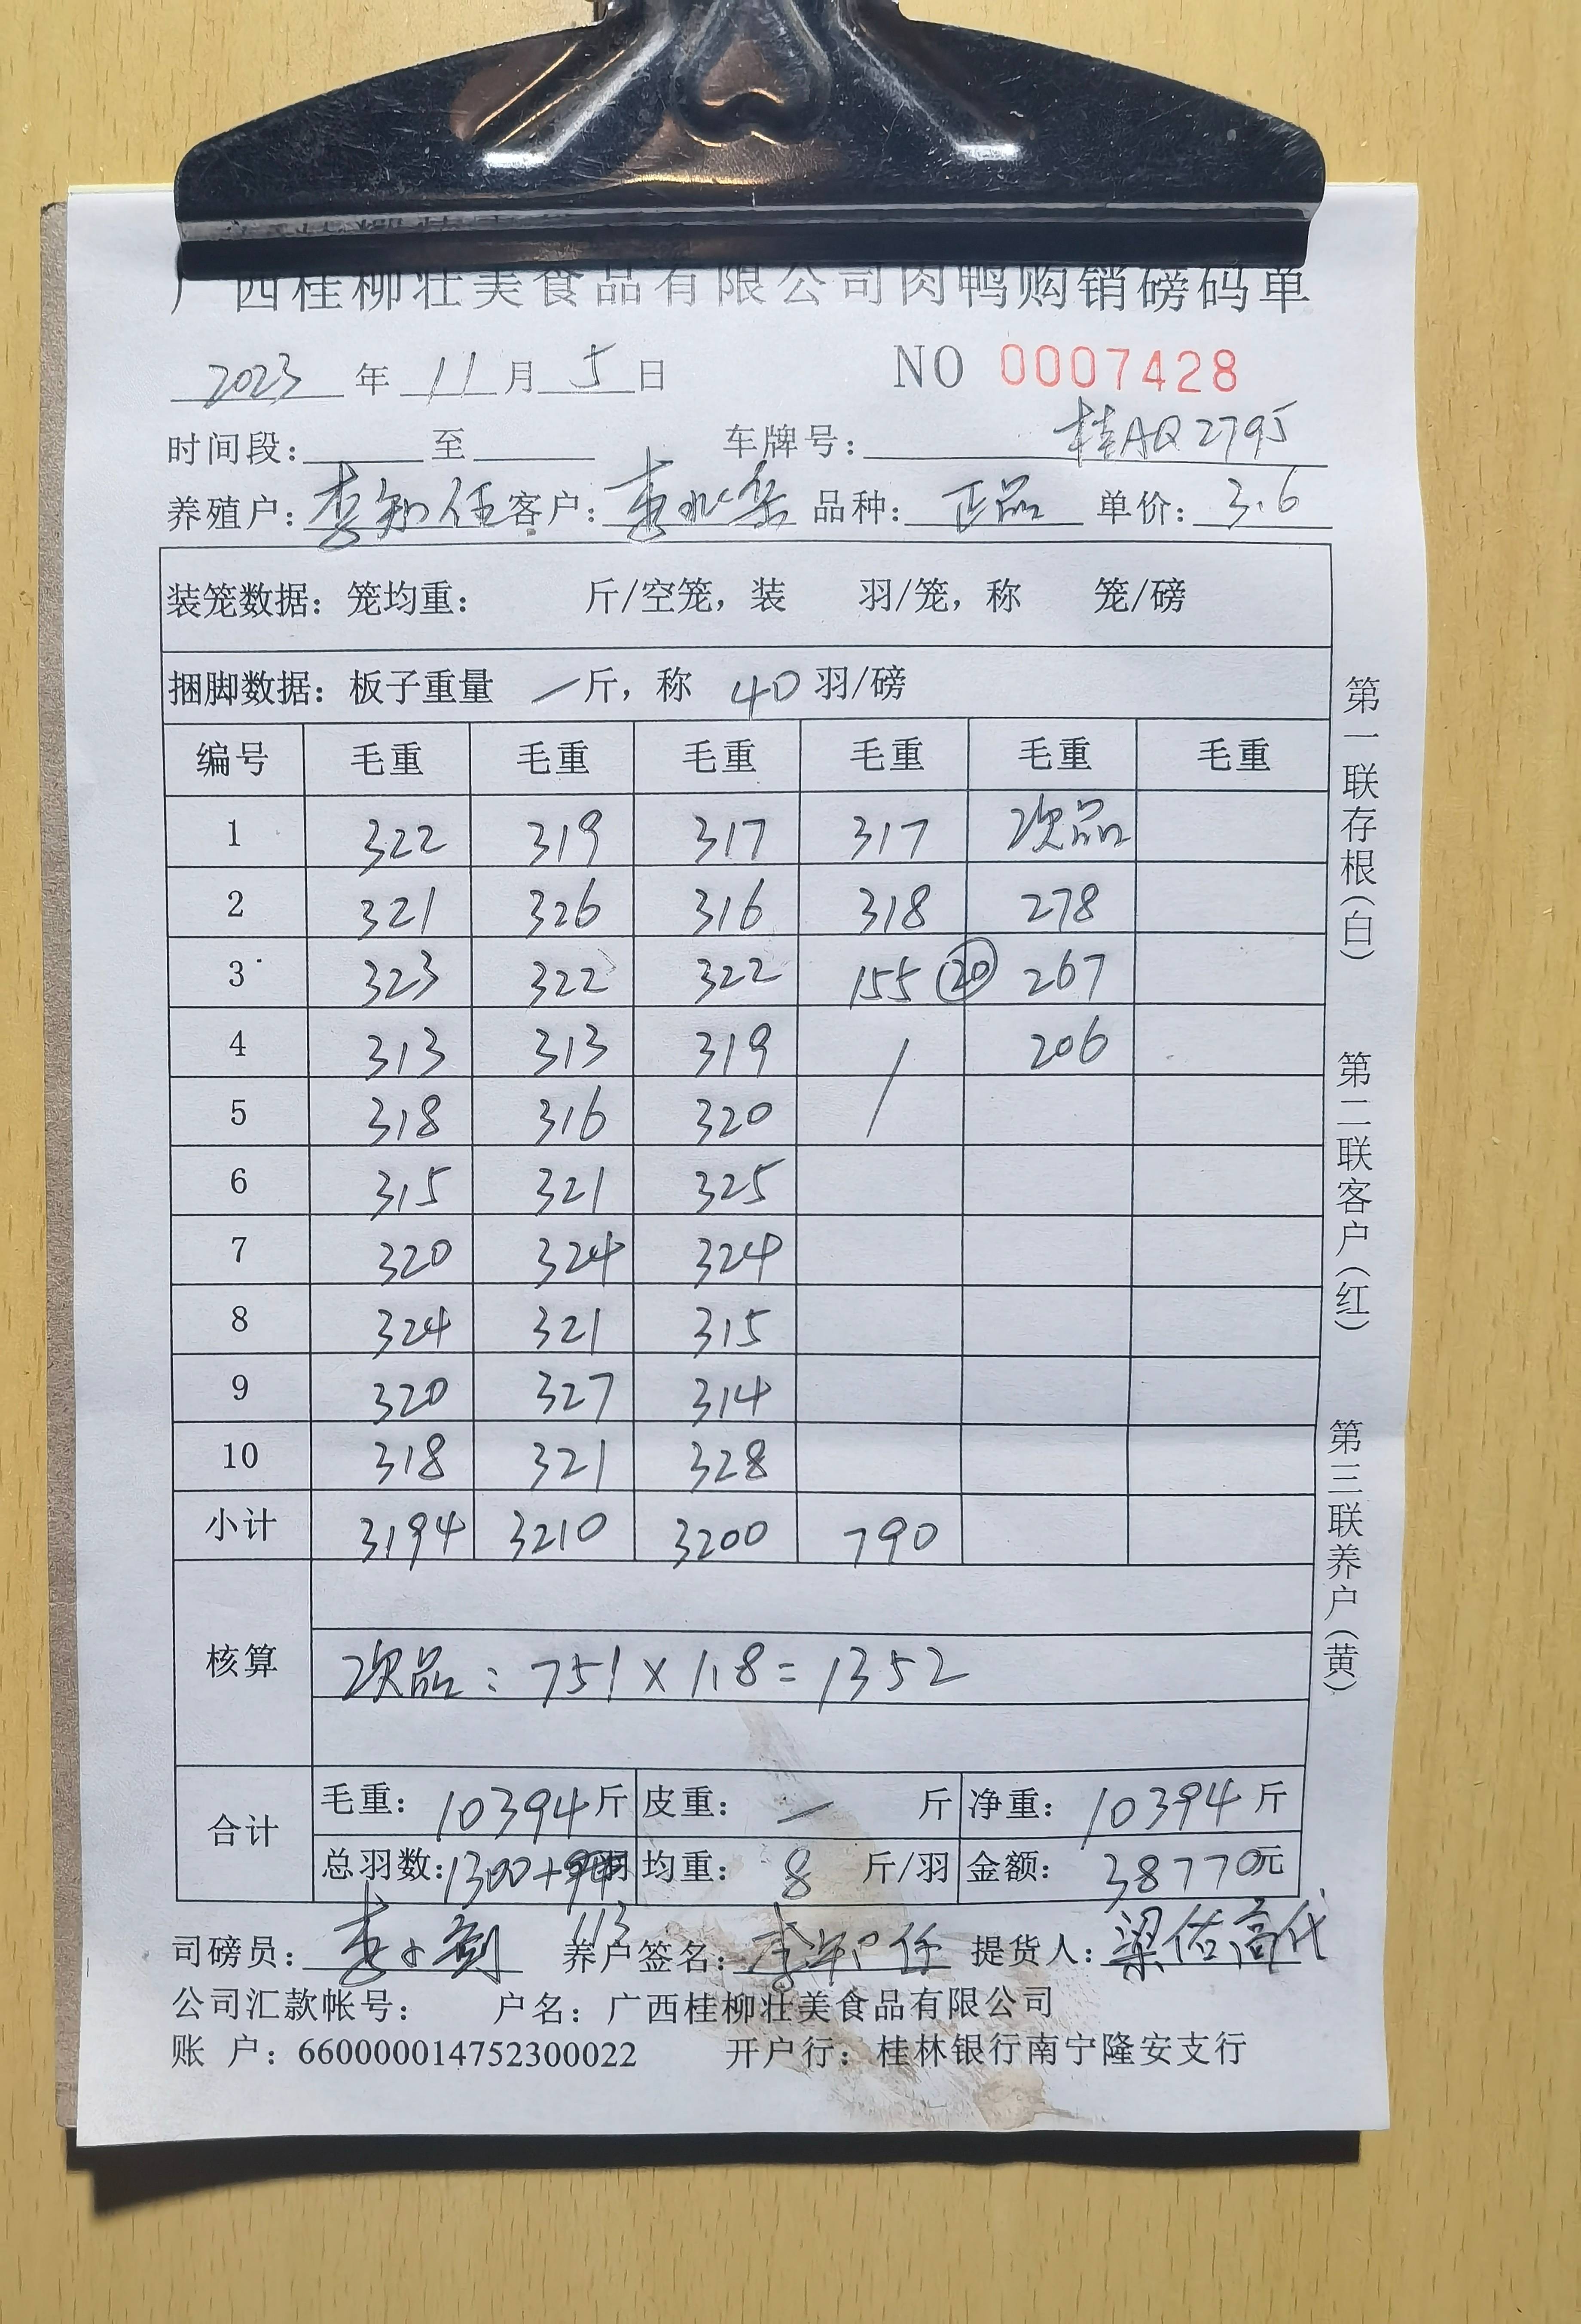 广西桂柳壮美食品有限公司肉鸭购销磅码单
2023年11月5日 NO 0007428
时间段: 至 车牌号: 桂AQ2795
养殖户: 李 任 客户: 李 品种: 正品 单价: 3.6
装笼数据: 笼均重: 斤/空笼, 装 羽/笼, 称 笼/磅
捆脚数据: 板子重量 — 斤, 称 40 羽/磅
编号 毛重 毛重 毛重 毛重 毛重 毛重
1 322 319 317 317 次品
2 321 326 316 318 278
3 323 322 322 155 20 267
4 313 313 319 / 206
5 318 316 320
6 315 321 325
7 320 324 324
8 324 321 315
9 320 327 314
10 318 321 328
小计 3194 3210 3200 790
核算
次品: 751×1.8=1352
合计
毛重: 10394斤 皮重: — 斤 净重: 10394斤
总羽数: 1300+ 羽 均重: 8 斤/羽 金额: 38770元
113
司磅员: 李 剑 养户签名: 李 任 提货人: 梁佑高代
公司汇款帐号: 户名: 广西桂柳壮美食品有限公司
账 户: 660000014752300022 开户行: 桂林银行南宁隆安支行
第一联存根(白)
第二联客户(红)
第三联养户(黄)